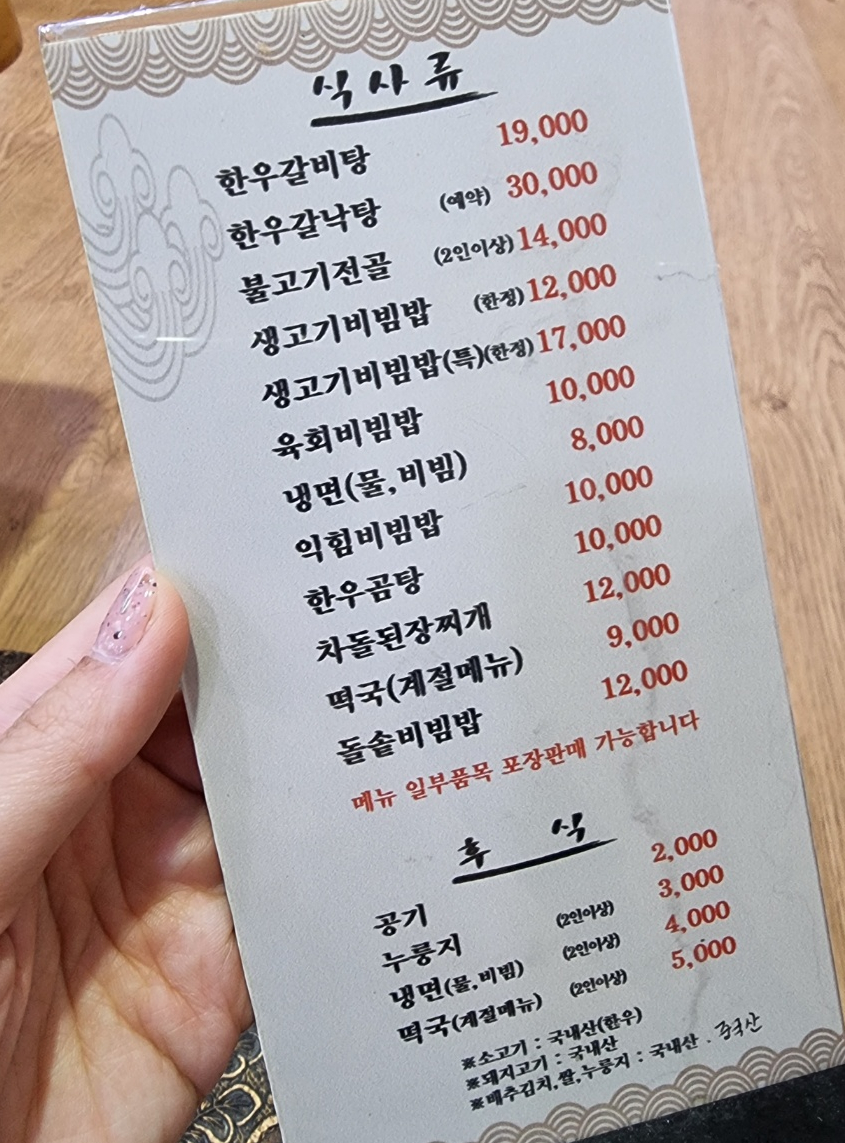 식사류
한우갈비탕 19,000
한우갈낙탕 (예약) 30,000
불고기전골 (2인이상) 14,000
생고기비빔밥 (한정) 12,000
생고기비빔밥(특)(한정) 17,000
육회비빔밥 10,000
냉면(물,비빔) 8,000
익힘비빔밥 10,000
한우곰탕 10,000
차돌된장찌개 12,000
떡국(계절메뉴) 9,000
돌솥비빔밥 12,000
메뉴 일부품목 포장판매 가능합니다
후 식
공기 2,000
누룽지 (2인이상) 3,000
냉면(물,비빔) (2인이상) 4,000
떡국(계절메뉴) (2인이상) 5,000
※소고기 : 국내산(한우)
※돼지고기 : 국내산
※배추김치,쌀,누룽지 : 국내산 . 중국산